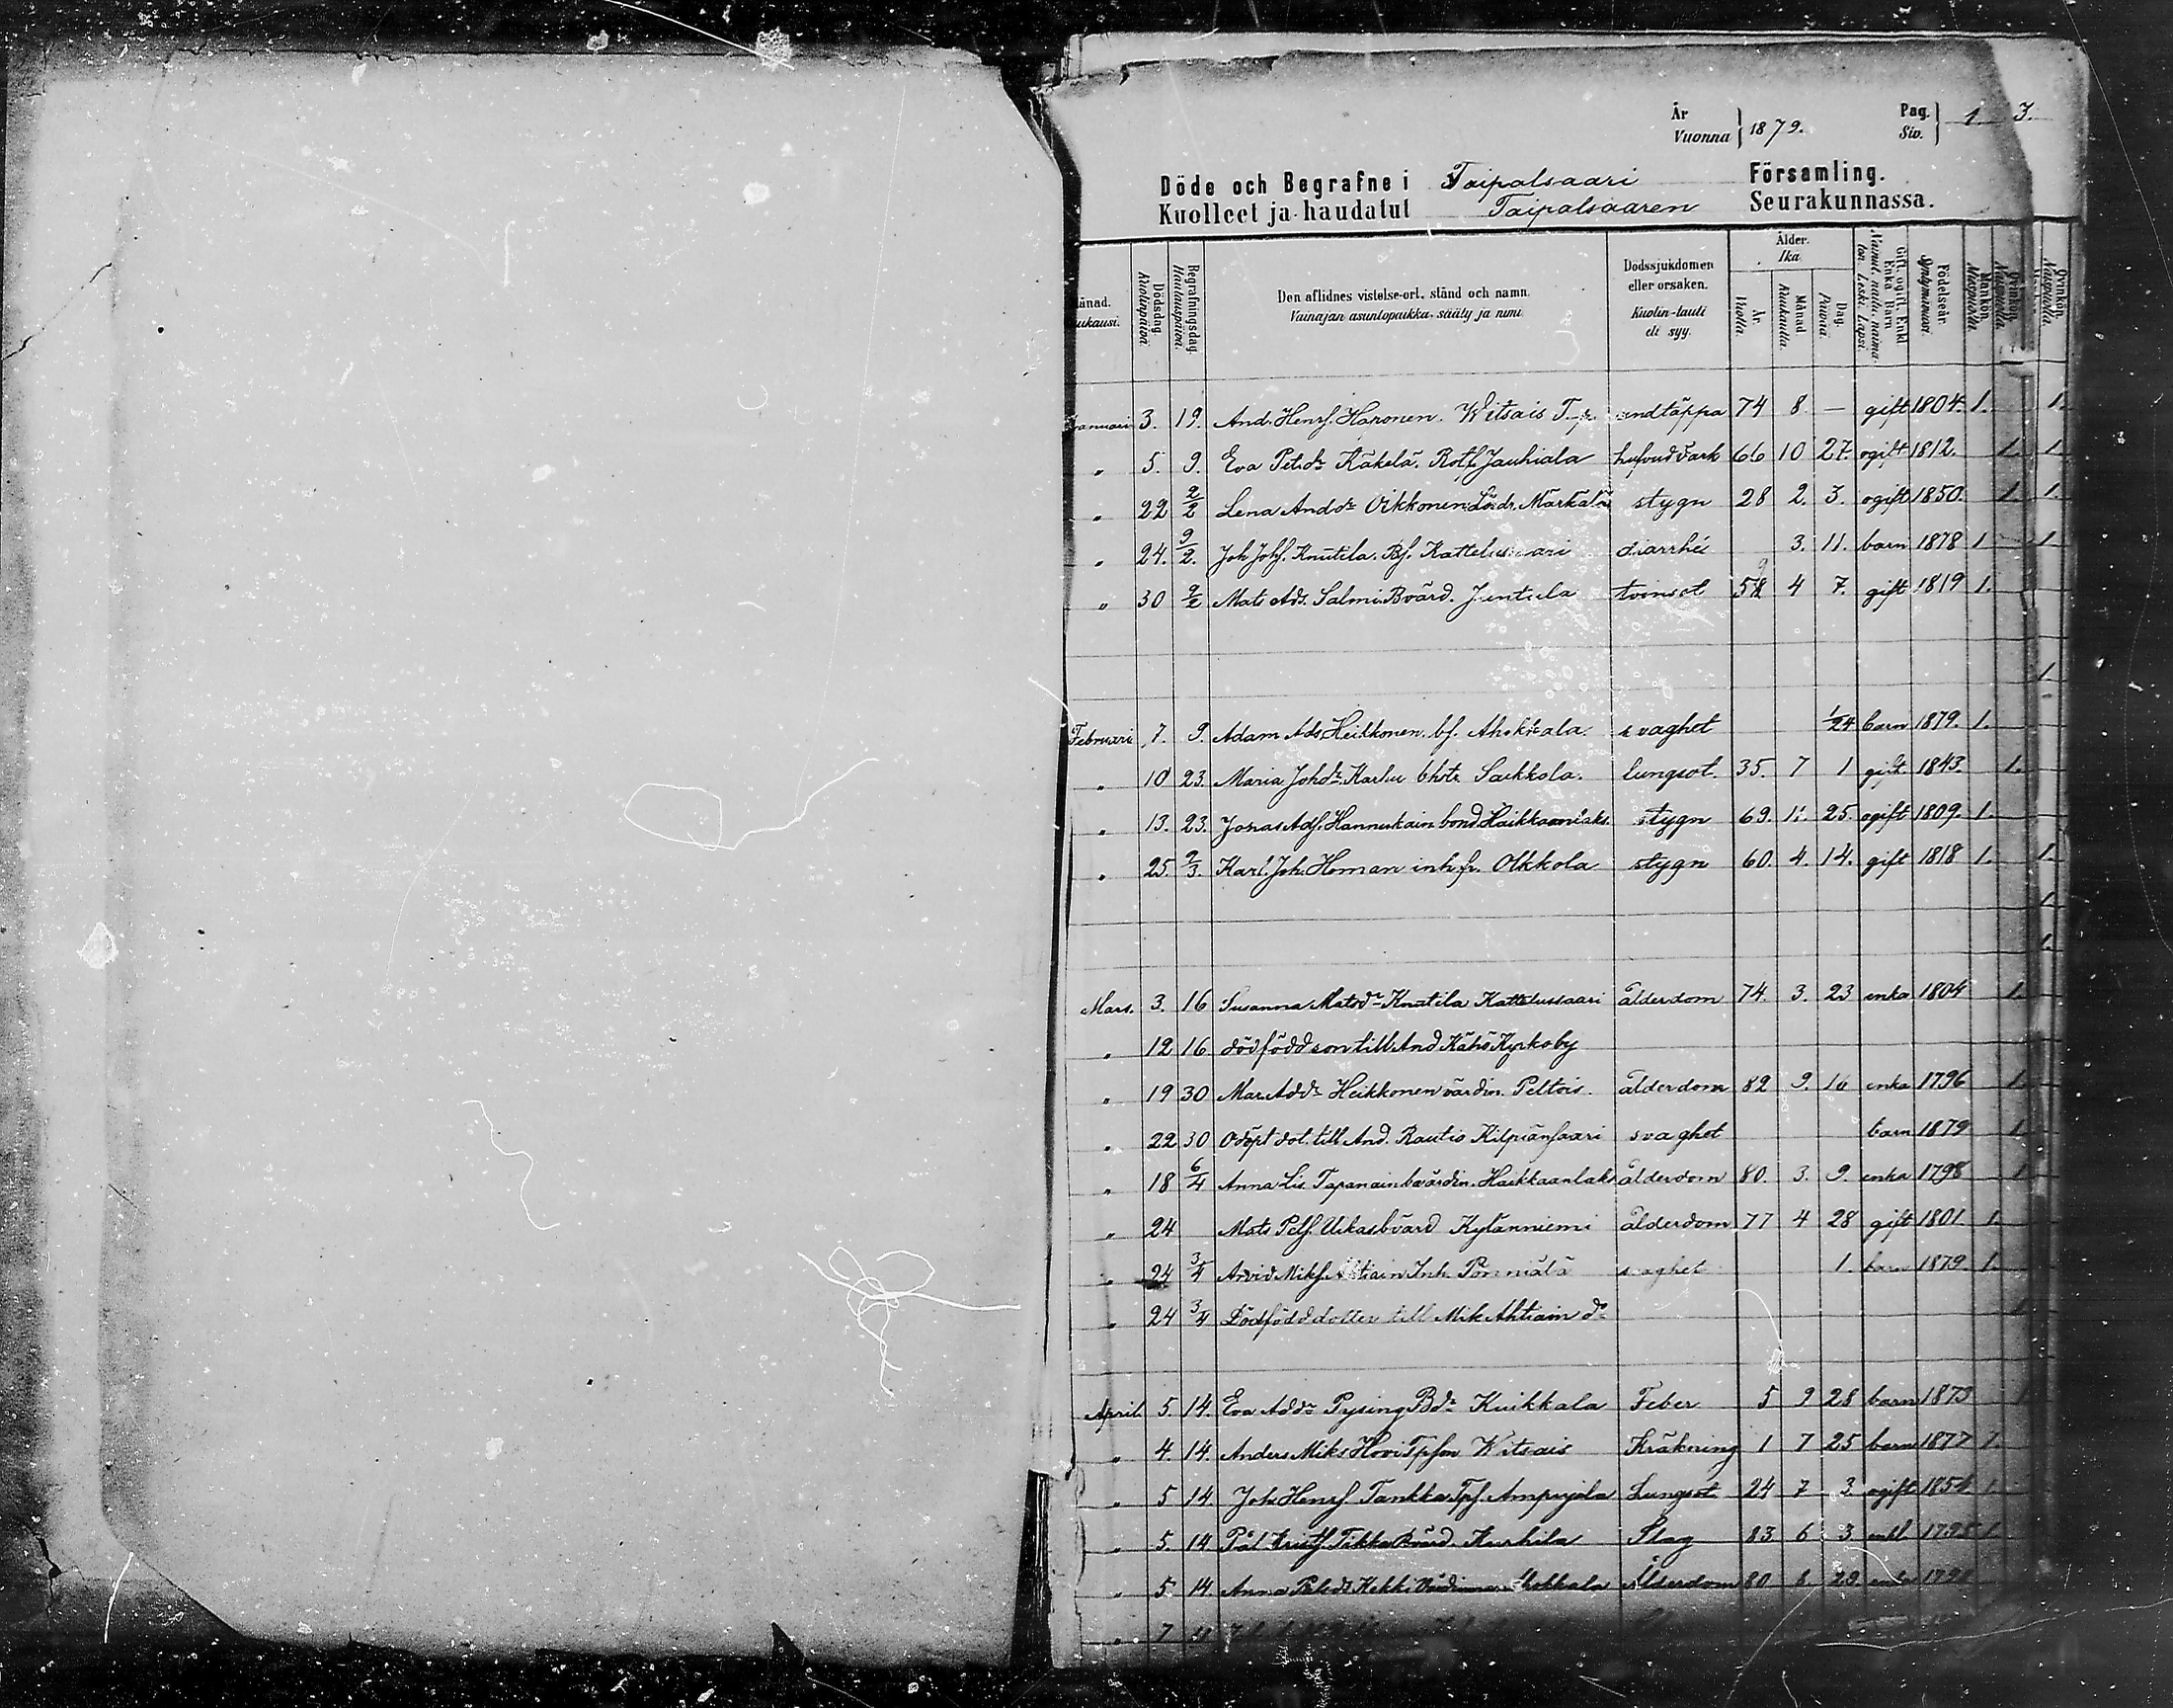 År
Vuonna } 1879. Pag.
Siv. } 1 3.
Döde och Begrafne i Taipalsaari Församling.
Kuolleet ja haudatut Taipalsaaren Seurakunnassa.
Månad. Kuukausi. Dödsdag. Kuolinpäivä. Begrafningsdag. Hautauspäivä. Den aflidnes vistelse-ort, stånd och namn. Vainajan asuntopaikka, sääty ja nimi. Dödssjukdomen eller orsaken. Kuolin-tauti eli syy. Ålder. Ikä. År. Vuotta. Månad. Kuukautta. Dag. Päivää. Gift, ogift, Enkl. Enka. Barn. Födelseår. Syntymävuosi. Mankön. Miespuolia. Qvinkön. Naispuolia.
Januari 3. 19. And. Henrs. Haronen. Witsais T. andtäppa 74 8 — gift 1804. 1. 1.
" 5. 9. Eva Petrdr Käkelä. Jauhiala hufvudvärk 66 10 27. ogift 1812. 1. 1.
" 22 2/2 Lena Anddr Oikkonen Märkälä stygn 28 2. 3. ogift 1850. 1. 1.
" 24. 9/2. Joh Johs. Knutila. Bs. Kattelussaari diarrhé 3. 11. barn 1878 1 1
" 30 9/2 Mats Ads. Salmi Bvärd. Jantula tvinsot 59 4 7. gift 1819 1.
1.
Februari 7. 9. Adam Ads Heikkonen. bs. Ahokkala. svaghet 1/24 barn 1879. 1.
" 10 23. Maria Johdr. Karhu Saikkola. lungsot. 35. 7 1 gift 1843. 1.
" 13. 23. Jonas Ads. Hannukain bond Haikkaanlaks. stygn 69. 11. 25. ogift 1809. 1.
" 25. 9/3. Karl. Joh. Homan inh. fr. Olkkola stygn 60. 4. 14. gift 1818 1. 1.
1.
1.
Mars. 3. 16 Susanna Matsdr Knutila Kattelussaari ålderdom 74. 3. 23 enka 1804 1.
" 12 16 dödfödd son till And Kähö Kyrkoby
" 19 30 Mar. Addr Heikkonen värdin. Peltois. ålderdom 82 9. 16 enka 1796 1.
" 22 30 Odöpt dot. till And. Rautio Kilpiänsaari svaghet barn 1879 1.
" 18 6/4 Anna Lis. Tapanain bvärdin. Haikkaanlaks ålderdom 80. 3. 9. enka 1798 1
" 24 Mats Pets. Ukas bvärd Kyläniemi ålderdom 77 4 28 gift 1801 1.
" 24 3/4 Arvid Miks. Ahtiain Inh. Pönniälä svaghet 1. barn 1879 1.
" 24 3/4 Dödfödd dotter till Mik Ahtiain do 1
April 5. 14. Eva Addr Pysing Bdr Kuikkala Feber 5 9 28 barn 1873 1
" 4. 14. Anders Miks Hovi Tpson Witsais Kräkning 1 7 25 barn 1877 1.
" 5 14 Joh Henrs Tankka Tps. Ampujala Lungsot 24 7 3 ogift 1854 1.
" 5. 14 Pål Krists. Tikka Bvärd. Kurhila Slag 83 6 3 enkl 1795 1.
" 5. 14. Anna Petrdr Hekki Värdinna Ahokkala Ålderdom 80 8. 29 enka
" 7